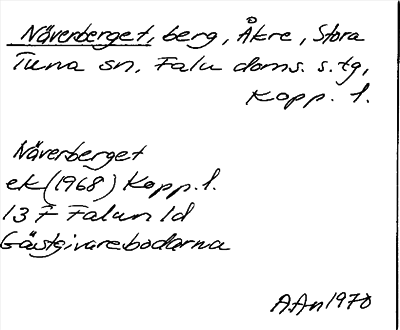 Näverberget, berg, Åkre, Stora
Tuna sn, Falu doms. s.tg,
Kopp. l.
Näverberget
ek (1968) Kopp. l.
13 F Falun 1d
Gästgivarebodarna
AAn 1970